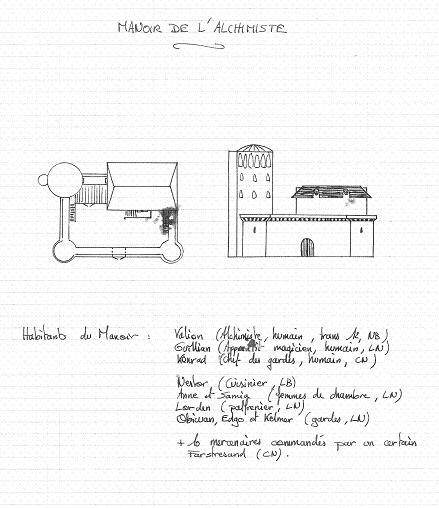 MANOIR DE L'ALCHIMISTE
Habitants du Manoir : Valion (Alchimiste, humain, trans, NB)
Guillian (Apprenti magicien, humain, LN)
Konrad (Chef des gardes, humain, CN)
(Cuisinier, LB)
Anne et Samia (femmes de chambre, LN)
Lorden (palfrenier, LN)
Obiwan, Edgo et Kelmar (gardes, LN)
+ 6 mercenaires commandés par un certain
Farstresand (CN).